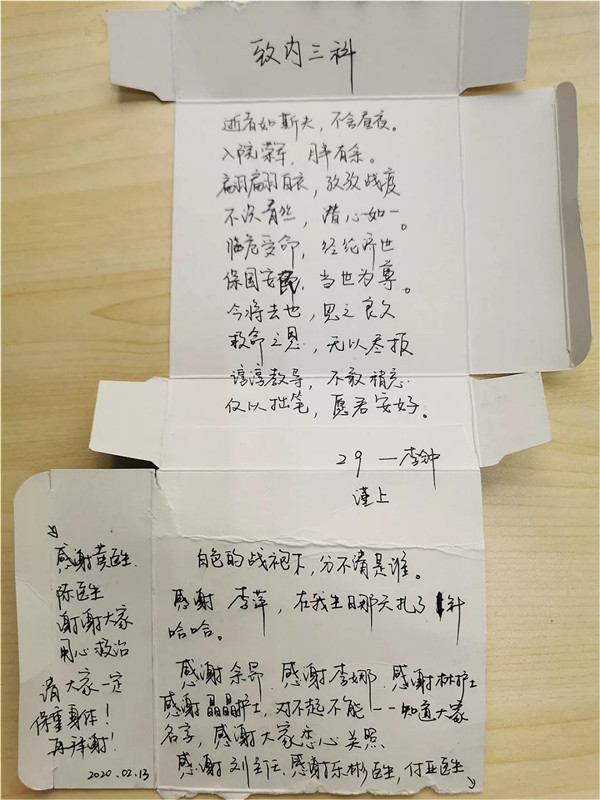 致内三科
逝者如斯夫，不舍昼夜。
入院荣军，月半有余。
翩翩白衣，孜孜战疫
不没有丝，潜心如一。
临危受命，经纶济世
保国安民，当世为尊。
今将去也，思之良久
救命之恩，无以尽报
谆谆教导，不敢稍忘
仅以拙笔，愿君安好。
29 — 李钟
谨上
白色的战袍下，分不清是谁。
感谢 李萍，在我生日那天扎了1针
哈哈。
感谢余昂 感谢李娜 感谢林护士
感谢晶晶护士，对不起不能一一知道大家
名字，感谢大家悉心关照
感谢刘主任 感谢乐彬医生，付亚医生
感谢黄医生
陈医生
谢谢大家
用心救治
请大家一定
保重身体！
再拜谢！
2020.02.13